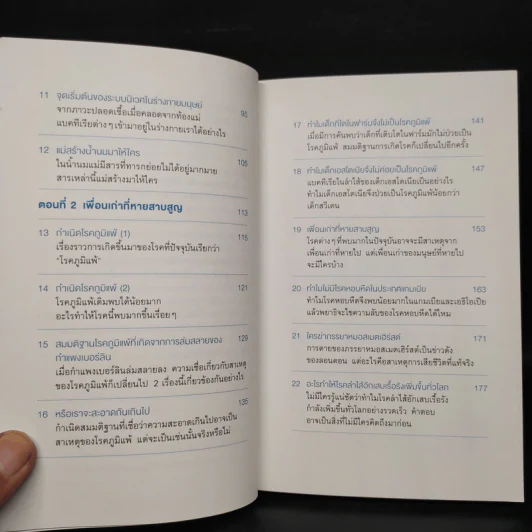 11 จุดเริ่มต้นของระบบนิเวศในร่างกายมนุษย์ 95
จากภาวะปลอดเชื้อเมื่อคลอดจากท้องแม่
แบคทีเรียต่างๆ เข้ามาอยู่ในร่างกายเราได้อย่างไร
12 แม่สร้างน้ำนมมาให้ใคร 105
ในน้ำนมแม่มีสารที่ทารกย่อยไม่ได้อยู่มากมาย
สารเหล่านี้แม่สร้างมาให้ใคร
ตอนที่ 2 เพื่อนเก่าที่หายสาบสูญ 113
13 กำเนิดโรคภูมิแพ้ (1) 115
เรื่องราวการเกิดขึ้นมาของโรคที่ปัจจุบันเรียกว่า
"โรคภูมิแพ้"
14 กำเนิดโรคภูมิแพ้ (2) 121
โรคภูมิแพ้เดิมพบได้น้อยมาก
อะไรทำให้โรคนี้พบมากขึ้นเรื่อยๆ
15 สมมติฐานโรคภูมิแพ้ที่เกิดจากการล่มสลายของ 129
กำแพงเบอร์ลิน
เมื่อกำแพงเบอร์ลินล่มสลายลง ความเชื่อเกี่ยวกับสาเหตุ
ของโรคภูมิแพ้ก็เปลี่ยนไป 2 เรื่องนี้เกี่ยวข้องกันอย่างไร
16 หรือเราจะสะอาดกันเกินไป 135
กำเนิดสมมติฐานที่เชื่อว่าความสะอาดเกินไปอาจเป็น
สาเหตุของโรคภูมิแพ้ แต่จะเป็นเช่นนั้นจริงหรือไม่
17 ทำไมเด็กที่โตในฟาร์มจึงไม่เป็นโรคภูมิแพ้ 141
เมื่อมีการค้นพบว่าเด็กที่เติบโตในฟาร์มมักไม่ป่วยเป็น
โรคภูมิแพ้ สมมติฐานการเกิดโรคก็เปลี่ยนไปอีกครั้ง
18 ทำไมเด็กเอสโตเนียจึงไม่ค่อยเป็นโรคภูมิแพ้ 147
แบคทีเรียในลำไส้ของเด็กเอสโตเนียเป็นอย่างไร
ทำไมเด็กเอสโตเนียจึงป่วยเป็นโรคภูมิแพ้น้อยกว่า
เด็กสวีเดน
19 เพื่อนเก่าที่หายสาบสูญ 153
โรคต่างๆ ที่พบมากในปัจจุบันอาจจะมีสาเหตุจาก
เพื่อนเก่าที่หายไป แต่เพื่อนเก่าของมนุษย์ที่หายไป
จะมีใครบ้าง
20 ทำไมไม่มีโรคหอบหืดในประเทศแกมเบีย 163
ทำไมโรคหอบหืดจึงพบน้อยมากในแกมเบียและเอธิโอเปีย
แล้วพยาธิจะไขความลับของโรคหอบหืดได้ไหม
21 ใครฆ่าภรรยาหมอสเมตเฮิร์สต์ 171
การตายของภรรยาหมอสเมตเฮิร์สต์เป็นข่าวดัง
ของลอนดอน แต่อะไรคือสาเหตุการเสียชีวิตที่แท้จริง
22 อะไรทำให้โรคลำไส้อักเสบเรื้อรังเพิ่มขึ้นทั่วโลก 177
ไม่มีใครรู้แน่ชัดว่าทำไมโรคลำไส้อักเสบเรื้อรัง
กำลังเพิ่มขึ้นทั่วโลกอย่างรวดเร็ว คำตอบ
อาจเป็นสิ่งที่ไม่มีใครคิดถึงมาก่อน